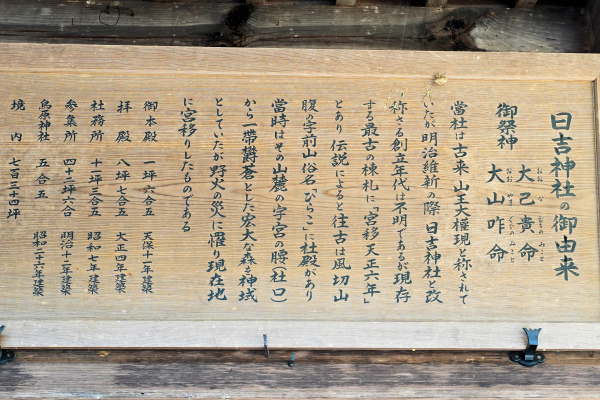 日吉神社の御由来
御祭神 大己貴命
大山咋命
當社は古来 山王大權現と称されて
いたが 明治維新の際 日吉神社と改
称さる 創立年代は不明であるが 現存
する最古の棟札に「宮移 天正六年」
とあり 伝説によると往古は風切山
腹の字前山俗名「びらこ」に社殿があり
當時はその山麓の字宮の腰(社口)
から一帯欝蒼とした宏大な森を神域
としていたが野火の災に罹り現在地
に宮移りしたものである
御本殿 一坪六合五 天保十一年建築
拝殿 八坪七合五 大正四年建築
社務所 十坪三合五 昭和七年建築
参集所 四十二坪六合 明治十二年建築
鳥原神社 五合五 昭和二十一年建築
境内 七百三十四坪